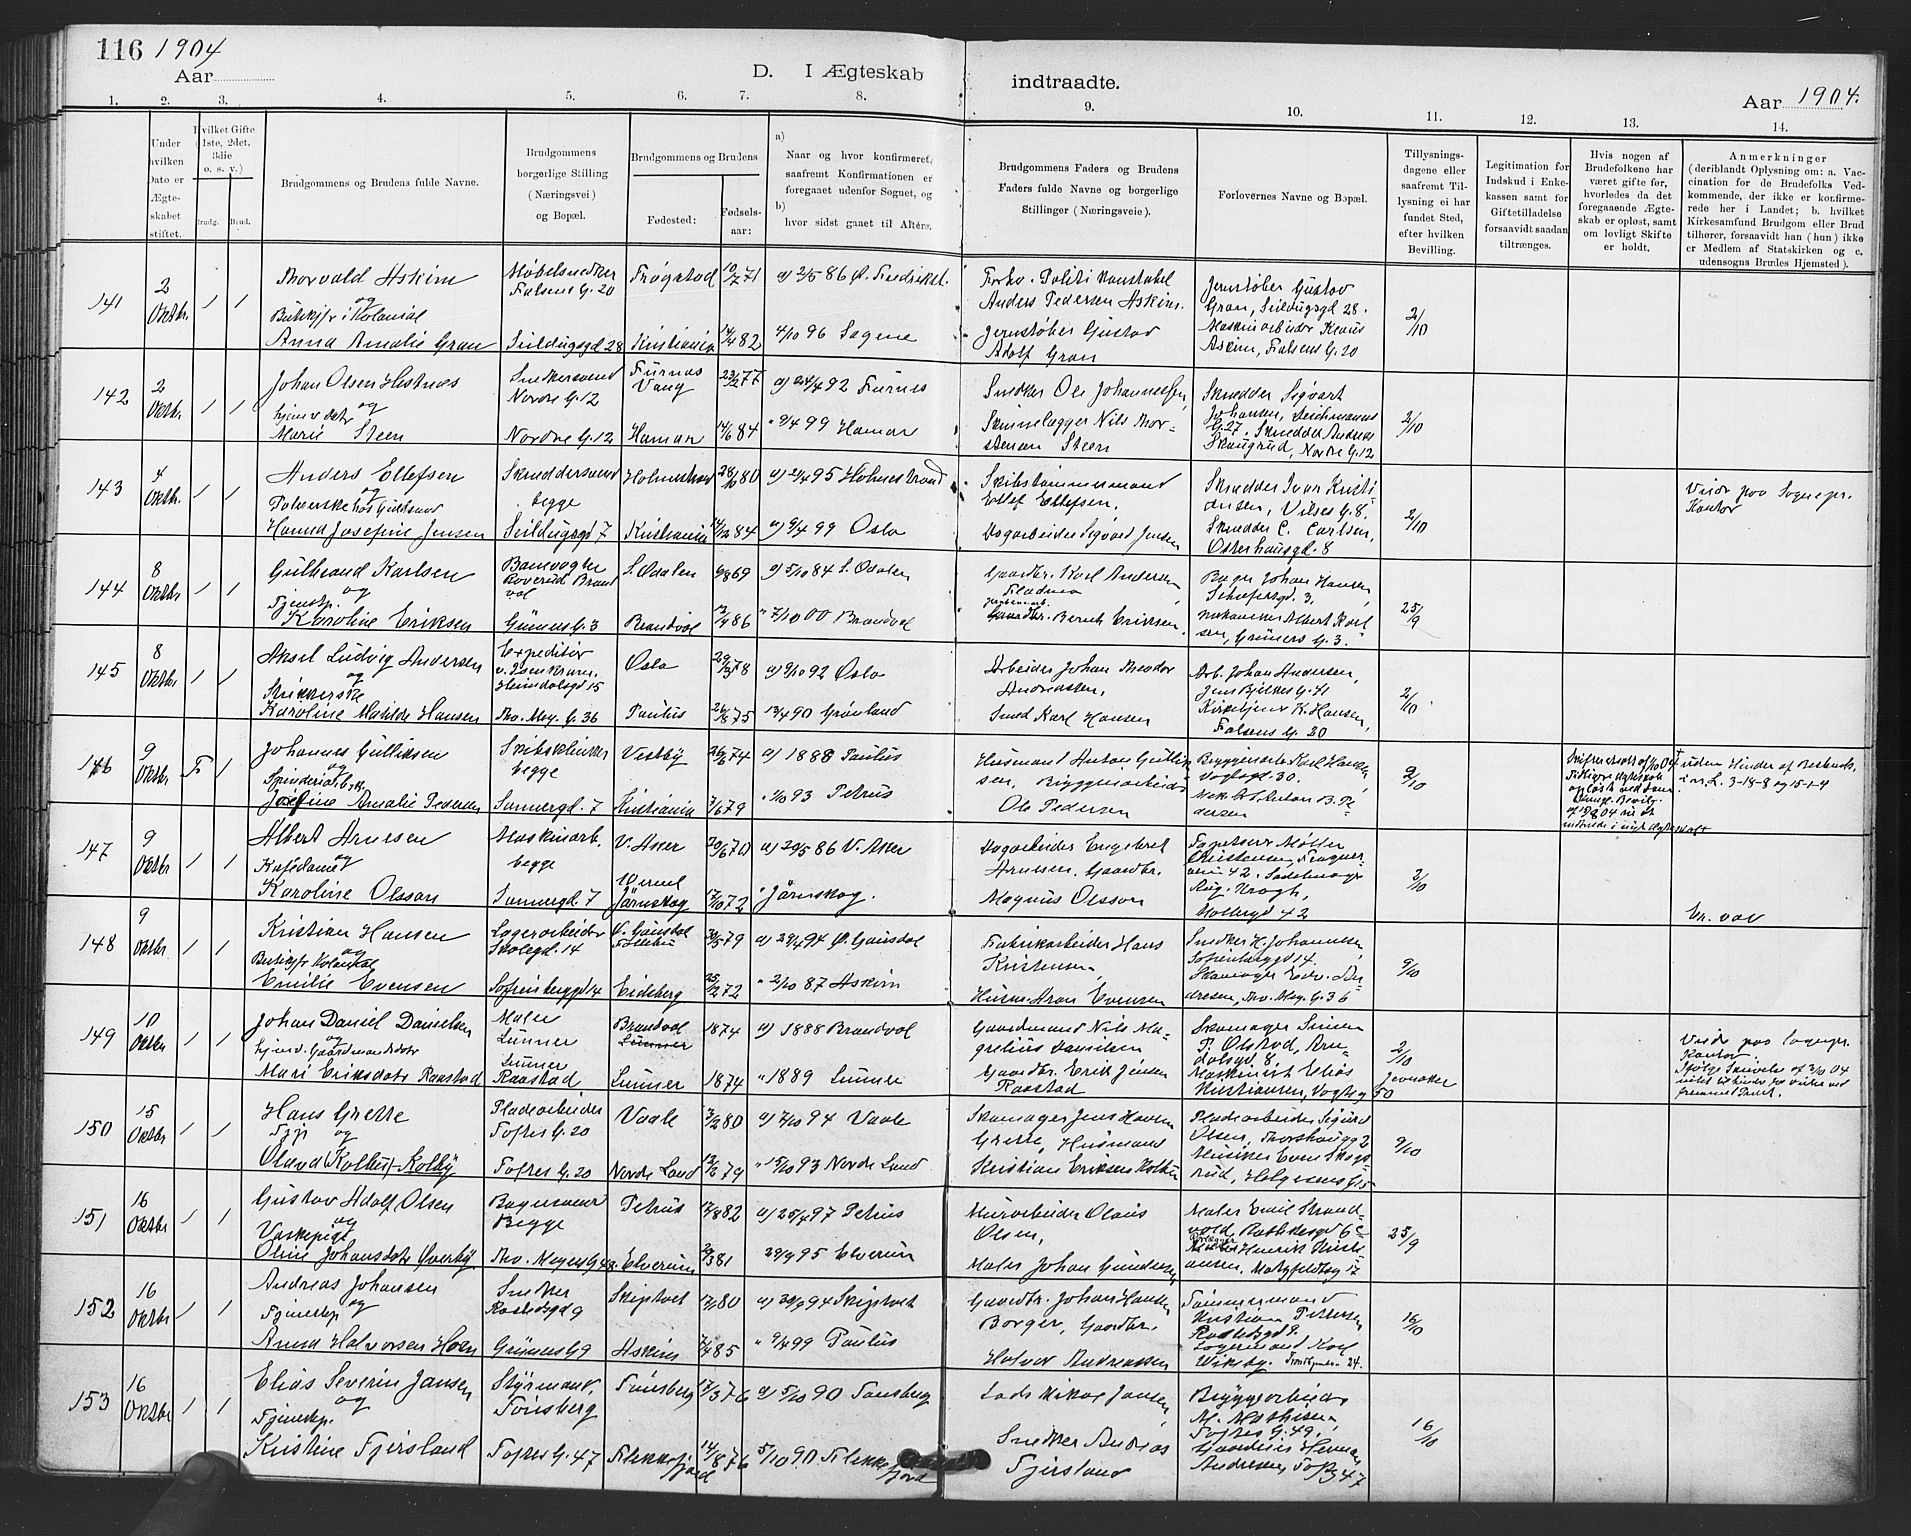 116 1904
Aar
D. I Ægteskab indtraadte.
Aar 1904.
1. 2. 3. 4. 5. 6. 7. 8. 9. 10. 11. 12. 13. 14.
Under hvilken Dato er Ægteskabet stiftet.
Hvilket Gifte (1ste, 2det, 3die o. s. v.)
Brudg. Brud.
Brudgommens og Brudens fulde Navne.
Brudgommens borgerlige Stilling (Næringsvei) og Bopæl.
Brudgommens og Brudens
Fødested: Fødselsaar:
a) Naar og hvor konfirmeret, saafremt Konfirmationen er foregaaet udenfor Sognet, og
b) hvor sidst gaaet til Alters.
Brudgommens Faders og Brudens Faders fulde Navne og borgerlige Stillinger (Næringsveie).
Forlovernes Navne og Bopæl.
Tillysningsdagene eller saafremt Tillysning ei har fundet Sted, efter hvilken Bevilling.
Legitimation for Indskud i Enkekassen samt for Giftetilladelse forsaavidt saadan tiltrænges.
Hvis nogen af Brudefolkene har været gifte før, hvorledes da det foregaaende Ægteskab er opløst, samt om lovligt Skifte er holdt.
Anmerkninger (deriblandt Oplysning om: a. Vaccination for de Brudefolks Vedkommende, der ikke er konfirmerede her i Landet; b. hvilket Kirkesamfund Brudgom eller Brud tilhører, forsaavidt han (hun) ikke er Medlem af Statskirken og c. udensogns Brudes Hjemsted).
141 2 Oktbr. 1 1
Thorvald Askim og
Butikjfr i Kolonial
Anna Amalie Gran
Møbelsnedker Falsens G. 20
Seildugsgd 28
Trøgstad 10/7 71
Kristiania 14/4 82
a) 2/5 86 Ø. Fredrikst.
4/10 96 Sagene
Forhv. Politi Konstabel Anders Pedersen Askim.
Jernstøber Gustav Adolf Gran
Jernstøber Gustav Gran, Seildugsgd 28.
Maskinarbeider Klaus Askim, Falsens G. 20
2/10
142 2 Oktbr 1 1
Johan Olsen Hestnæs og
hjemv. datr
Marie Steen
Snedkersvend Nordre G. 12
Nordre G. 12
Furnæs Vang 23/2 77
Hamar 14/6 84
a) 24/4 92 Furnes
" 9/4 99 Hamar
Snedker Ole Johannessen,
Skindlægger Nils Thorstensen Steen
Skrædder Sigvart Johansen, Deichmanns G. 27. Skrædder Andreas Skaugrud, Nordre G. 12
2/10
143 4 Oktbr. 1 1
Anders Ellefsen og
Polerske hos Guldsmed
Hanna Josefine Jensen
Skræddersvend begge
Seildugsgd 7
Holmestrand 28/10 80
Kristiania 14/12 84
a) 21/4 95 Holmestrand
a) 9/4 99 Oslo
Skibstømmermand Ellef Ellefsen,
Dagarbeider Sigvard Jensen
Skrædder Ivar Kristiansen, Vilses G. 8,
Skrædder C. Carlsen, Osterhausgd. 8
2/10
Viede paa Sognepr. Kontor
144 8 Oktbr 1 1
Gulbrand Karlsen og
Tjenestp.
Karoline Eriksen
Banevogter Roverud Brandval
Grüners G. 3
S. Odalen 9/8 69
Brandvol 12/4 86
a) 5/10 84 S. Odalen
" 7/10 00 Brandvol
Gaardbr. Karl Andersen
Gaardbr. Bernt Eriksen.
Bager Johan Hansen, Schefersgd. 3,
Mekaniker Albert Karlsen, Grüners G. 3.
25/9
145 8 Oktbr 1 1
Aksel Ludvig Andersen og
Strikkerske
Karoline Matilde Hansen
Expeditør v. Isenkram. Heimdalsgd 15
Thv. Mey. G. 36
Oslo 29/3 78
Paulus 26/8 75
a) 9/10 92 Oslo
13/4 90 Grønland
Arbeider Johan Theodor Andreassen,
Smed Karl Hansen
Arb. Johan Andersen, Jens Bjelkes G. 41
Kirketjener K. Hansen, Falsens G. 20
2/10
146 9 Oktbr Fr 1
Johannes Gulliksen og
Spinderiarbske.
Josefine Amalie Pedersen
Skibsklinker begge
Sannergd. 7
Vestby 26/6 74
Kristiania 7/6 79
a) 1888 Paulus
" 1/10 93 Petrus
Husmand Anton Gulliksen, Bryggeriarbeider Ole Pedersen
Bryggeriarb. Karl Hansen, Vogtsgd. 30.
Mek. Arb. Anton B. Pedersen
9/10
uden Hinder af Bestemmelserne i N. L. 3-18-8 og 15-1-4
147 9 Oktbr 1 1
Albert Arnesen og
Kafédame
Karoline Olsson
Maskinarb. begge
Sannergd. 7
V. Aker 20/6 70
Värmel Järnskog 17/10 72
a) 29/5 86 V. Aker
" Järnskog.
Dagarbeider Engebret Arnesen. Gaardbr. Magnus Olsson
Tapetserer Møller Christensen, Fragnerveien 42. Sadelmager Aug. Krogh, Holbergd 42
2/10
Er. vac
148 9 Oktbr 1 1
Kristian Hansen og
Butikjfr Kolonial
Emilie Evensen
Lagerarbeider Skolegd. 14
Sofienberggd 4
Ø. Gausdal Follebu 30/5 79
Eidsberg 25/12 72
a) 29/4 94 Ø. Gausdal
" 2/10 87 Askim
Fabrikarbeider Hans Kristensen
Husm. Aron Evensen
Snedker H. Johannesen, Sofienberggd 14.
Skomager Edv. Andresen, Thv. Mey. G. 36
9/10
149 10 Oktbr 1 1
Johan Daniel Danielsen og
hjemv. Gaardmandsdatr
Mari Eriksdatr Raastad
Maler Lunner
Lunner Raastad
Brandvol Lunner 1874
Lunner 1874
a) 1888 Brandvol
" 1889 Lunner
Gaardmand Nils Magrelius Danielsen
Gaardbr. Erik Jensen Raastad
Skomager Simen P. Olstad, Arndalsgd. 8,
Maskinist Eliàs Kristiansen, Vogtsg 50
2/10 Jevnaker
Viede paa Sognepr. Kontor.
Ifølge Skrivelse af 3/10 04
150 15 Oktbr 1 1
Hans Grette og
Tjp
Olava (Kolbu) Kolby
Pladearbeider Toftes G. 20
Toftes G. 20
Vaale 3/2 80
Nordre Land 12/6 79
a) 7/10 94 Vaale
" 15/10 93 Nordre Land
Skomager Jens Hansen Grette, Husmand
Kristian Eriksen Kolbu
Pladearbeider Sigurd Olsen, Thorshauggd 2
Musiker Even Skogsrud, Helgesens G 15
9/10
151 16 Oktbr 1 1
Gustav Adolf Olsen og
Vaskepige
Oline Johansdatr Överby
Bagersvend Begge
Thv. Meyers G 48
Petrus 17/8 82
Elverum 29/3 81
a) 25/4 97 Petrus
29/9 95 Elverum
Murarbeider Olaus Olsen,
Maler Johan Gundersen
Maler Emil Strandvold, Rathkesgd 6 c
Henrik Kristiansen, Markfeldtsg 17
25/9
152 16 Oktbr 1 1
Andreas Johansen og
Tjenestp
Anna Halvorsen Hoen
Snedker Rathkesgd 9
Grüners G 9
Skiptvet 17/1 80
Askim 7/4 85
a) 30/9 94 Skiptvet
" 9/4 99 Paulus
Gaardbr. Johan Hansen Borger, Gaardbr.
Halvor Andreassen
Tømmermand Kristian Pettersen Rathkesgd 9.
Lagermand Karl Wiksby.
16/10
153 16 Oktbr 1 1
Elias Severin Jansen og
Tjenestp.
Kristine Tjersland
Styrmand, Tönsberg
Toftes G. 47
Tönsberg 17/3 76
Flekkefjord 14/8 76
a) 5/10 90 Tönsberg
5/10 90 Flekkefjord
Lods Mikal Jansen,
Snedker Andreas Tjersland
Bryggearbeider M. Mathisen, Toftes G. 49.
Andresen, Toftsg 47
16/10